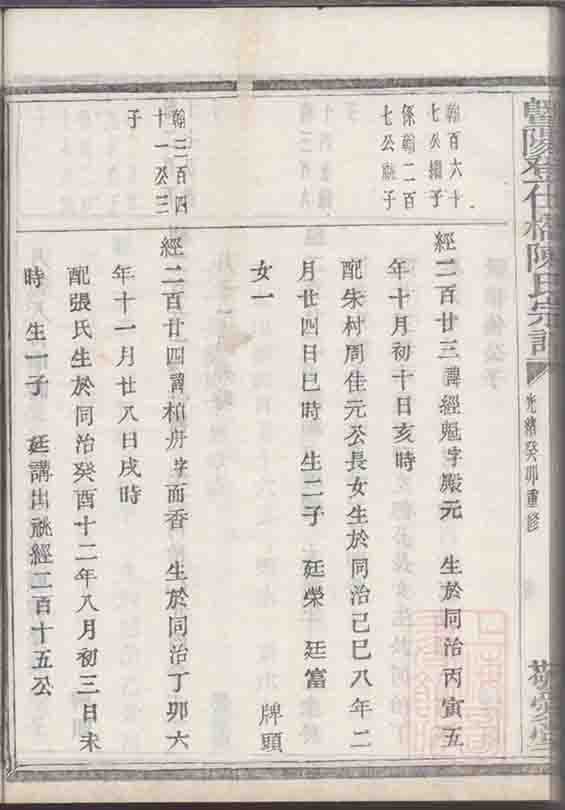 暨陽登仕橋陳氏宗譜
光緒癸卯重修
敬愛堂
翰百六十
七公繼子
係翰二百
七公祧子
經二百廿三諱經魁字殿元 生於同治丙寅五
年十月初十日亥時
配朱村周佳元公長女生於同治己巳八年二
月廿四日巳時 生二子 廷榮 廷富
女一 牌頭
翰三百四
十一公三
子
經二百廿四諱柏舟字而香 生於同治丁卯六
年十一月廿八日戌時
配張氏生於同治癸酉十二年八月初三日未
時 生一子 廷講出祧經二百十五公